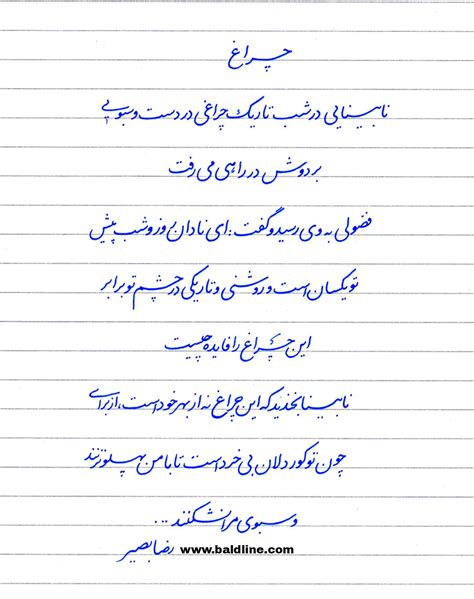 چراغ
نابینایی در شب تاریک چراغی در دست و سبویی
بر دوش در راهی می رفت
فضولی به وی رسید و گفت: ای نادان روز و شب پیش
تو یکسان است و روشنی و تاریکی در چشم تو برابر
این چراغ را فایده چیست
نابینا بخندید که این چراغ نه از بهر خود است، از برای
چون تو کور دلان بی خرد است تا با من پهلو نزنند
و سبوی مرا نشکنند ...
رضا بصیر www.baldline.com